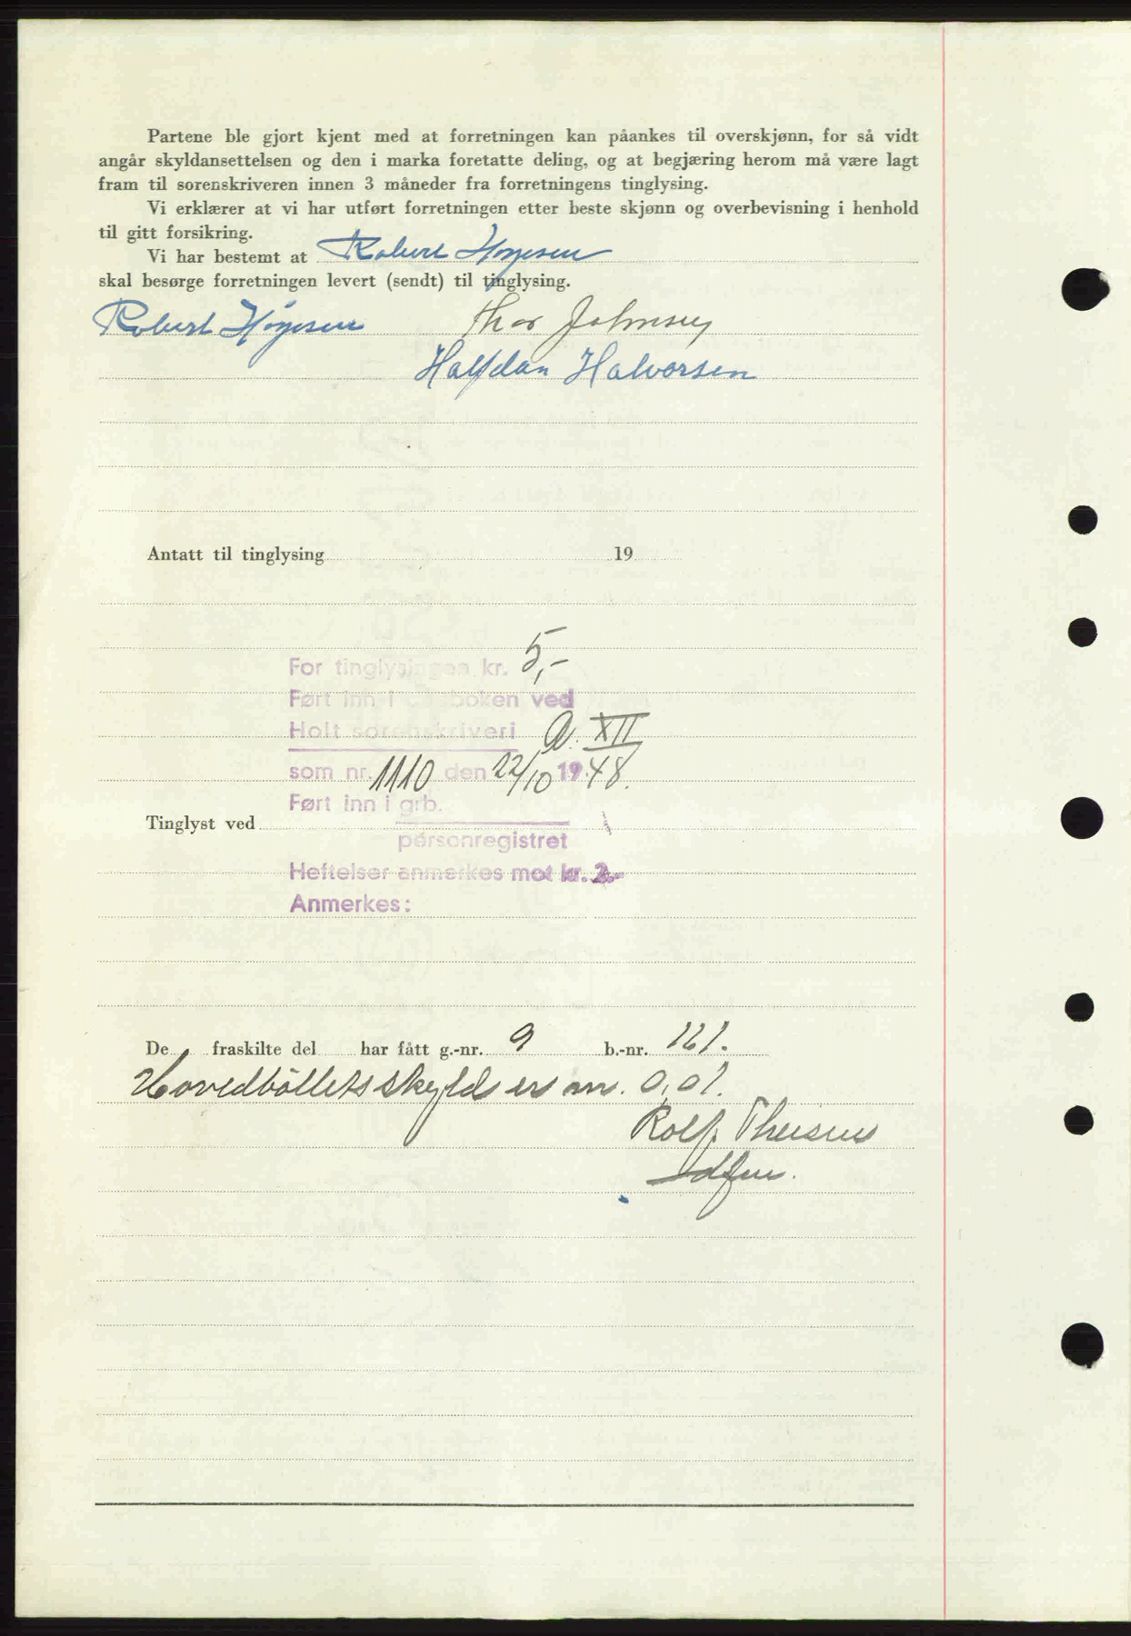 Partene ble gjort kjent med at forretningen kan påankes til overskjønn, for så vidt
angår skyldansettelsen og den i marka foretatte deling, og at begjæring herom må være lagt
fram til sorenskriveren innen 3 måneder fra forretningens tinglysing.
Vi erklærer at vi har utført forretningen etter beste skjønn og overbevisning i henhold
til gitt forsikring.
Vi har bestemt at Robert Høyesen
skal besørge forretningen levert (sendt) til tinglysing.
Robert Høyesen Thor Johnsen
Halfdan Halvorsen
Antatt til tinglysing 19
For tinglysingen kr. 5,-
Ført inn i dagboken ved
Holt sorenskriveri A. XII
som nr. 1110 den 22/10 1948.
Ført inn i grb.
Tinglyst ved
personregistret
Heftelser anmerkes mot kr. 2.-
Anmerkes:
De fraskilte del har fått g.-nr. 9 b.-nr. 121.
Hovedbøllets skyld er nu. 0,01.
Rolf Theisen